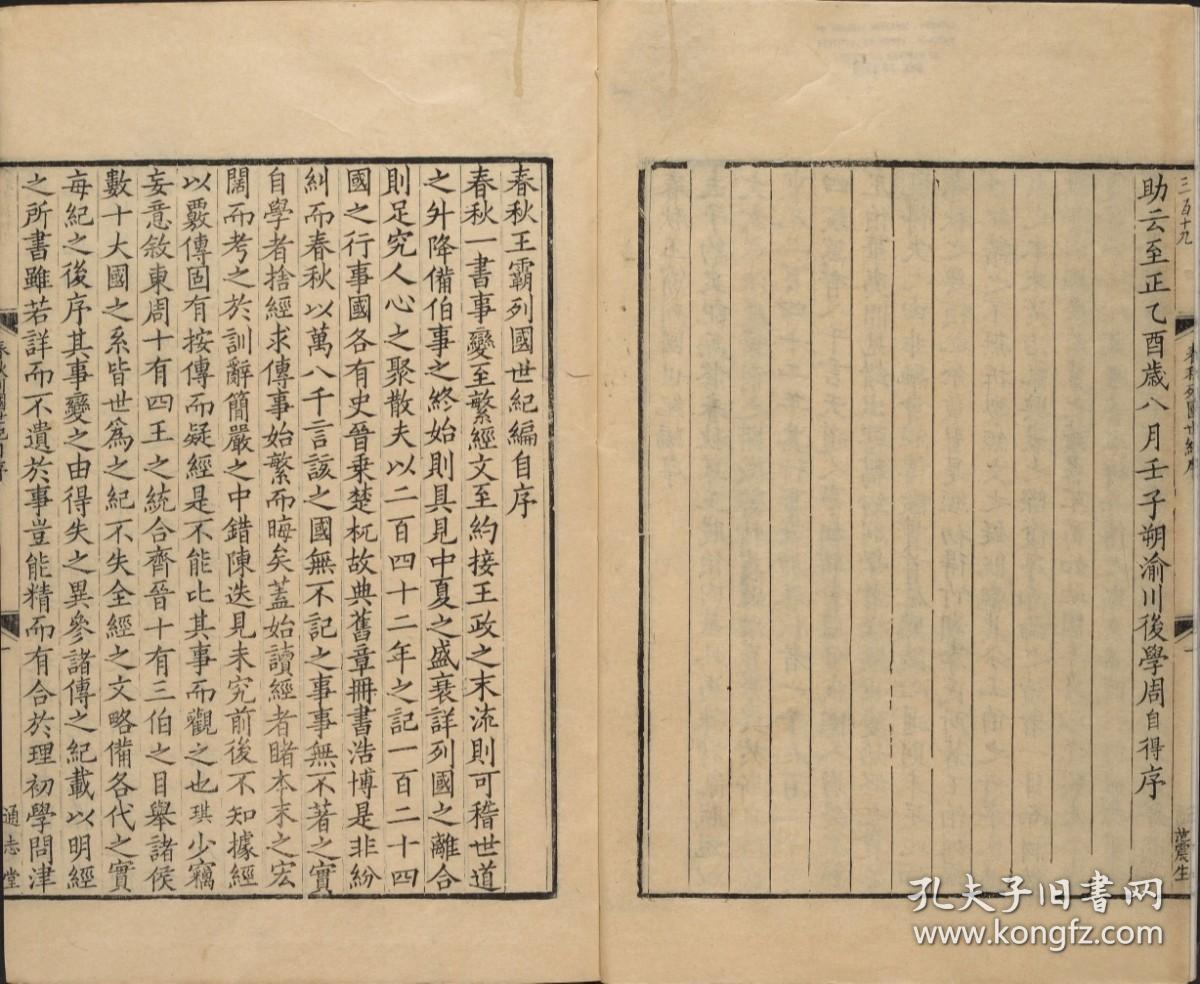 三百十九
助云至正乙酉歳八月壬子朔渝川後學周自得序
春秋列國世紀序
一
范震生
春秋王霸列國世紀編自序
春秋一書事變至繁經文至約接王政之末流則可稽世道
之外降備伯事之終始則具見中夏之盛衰詳列國之離合
則足究人心之聚散夫以二百四十二年之記一百二十四
國之行事國各有史晉乗楚杌故典舊章冊書浩博是非紛
糾而春秋以萬八千言該之國無不記之事事無不著之實
自學者捨經求傳事始繁而晦矣蓋始讀經者睹本末之宏
闊而考之於訓辭簡嚴之中錯陳迭見未究前後不知據經
以覈傳固有按傳而疑經是不能比其事而觀之也琪少竊
妄意敘東周十有四王之統合齊晉十有三伯之目舉諸侯
數十大國之系皆世爲之紀不失全經之文略備各代之實
每紀之後序其事變之由得失之異參諸傳之紀載以明經
之所書雖若詳而不遺於事豈能精而有合於理初學問津
春秋列國世紀自序
一
通志堂
孔夫子旧书网
www.kongfz.com